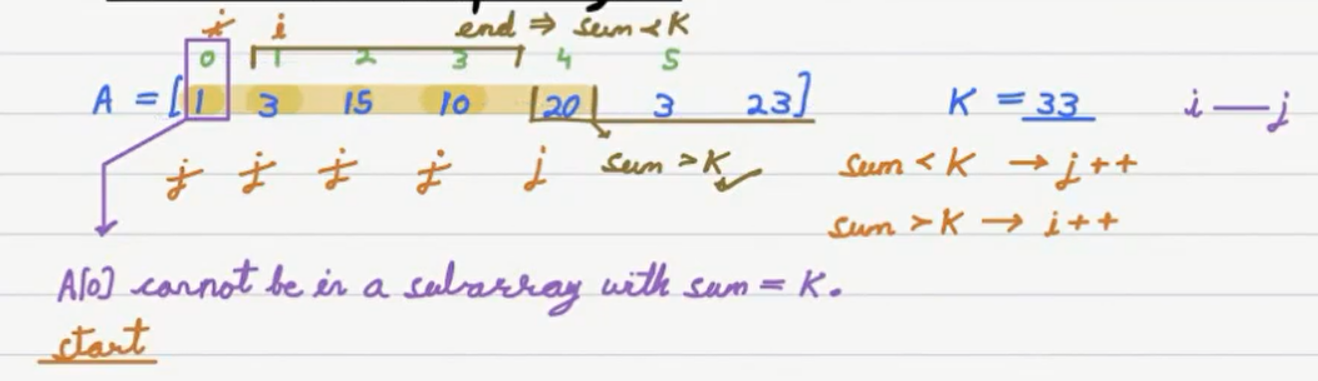 i i end ⇒ sum < K
0 1 2 3 4 5
A = [1 3 15 10 20 3 23] K = 33 i — j
j j j j j sum > K ✓ sum < K → j++
sum > K → i++
A[0] cannot be in a subarray with sum = K.
start